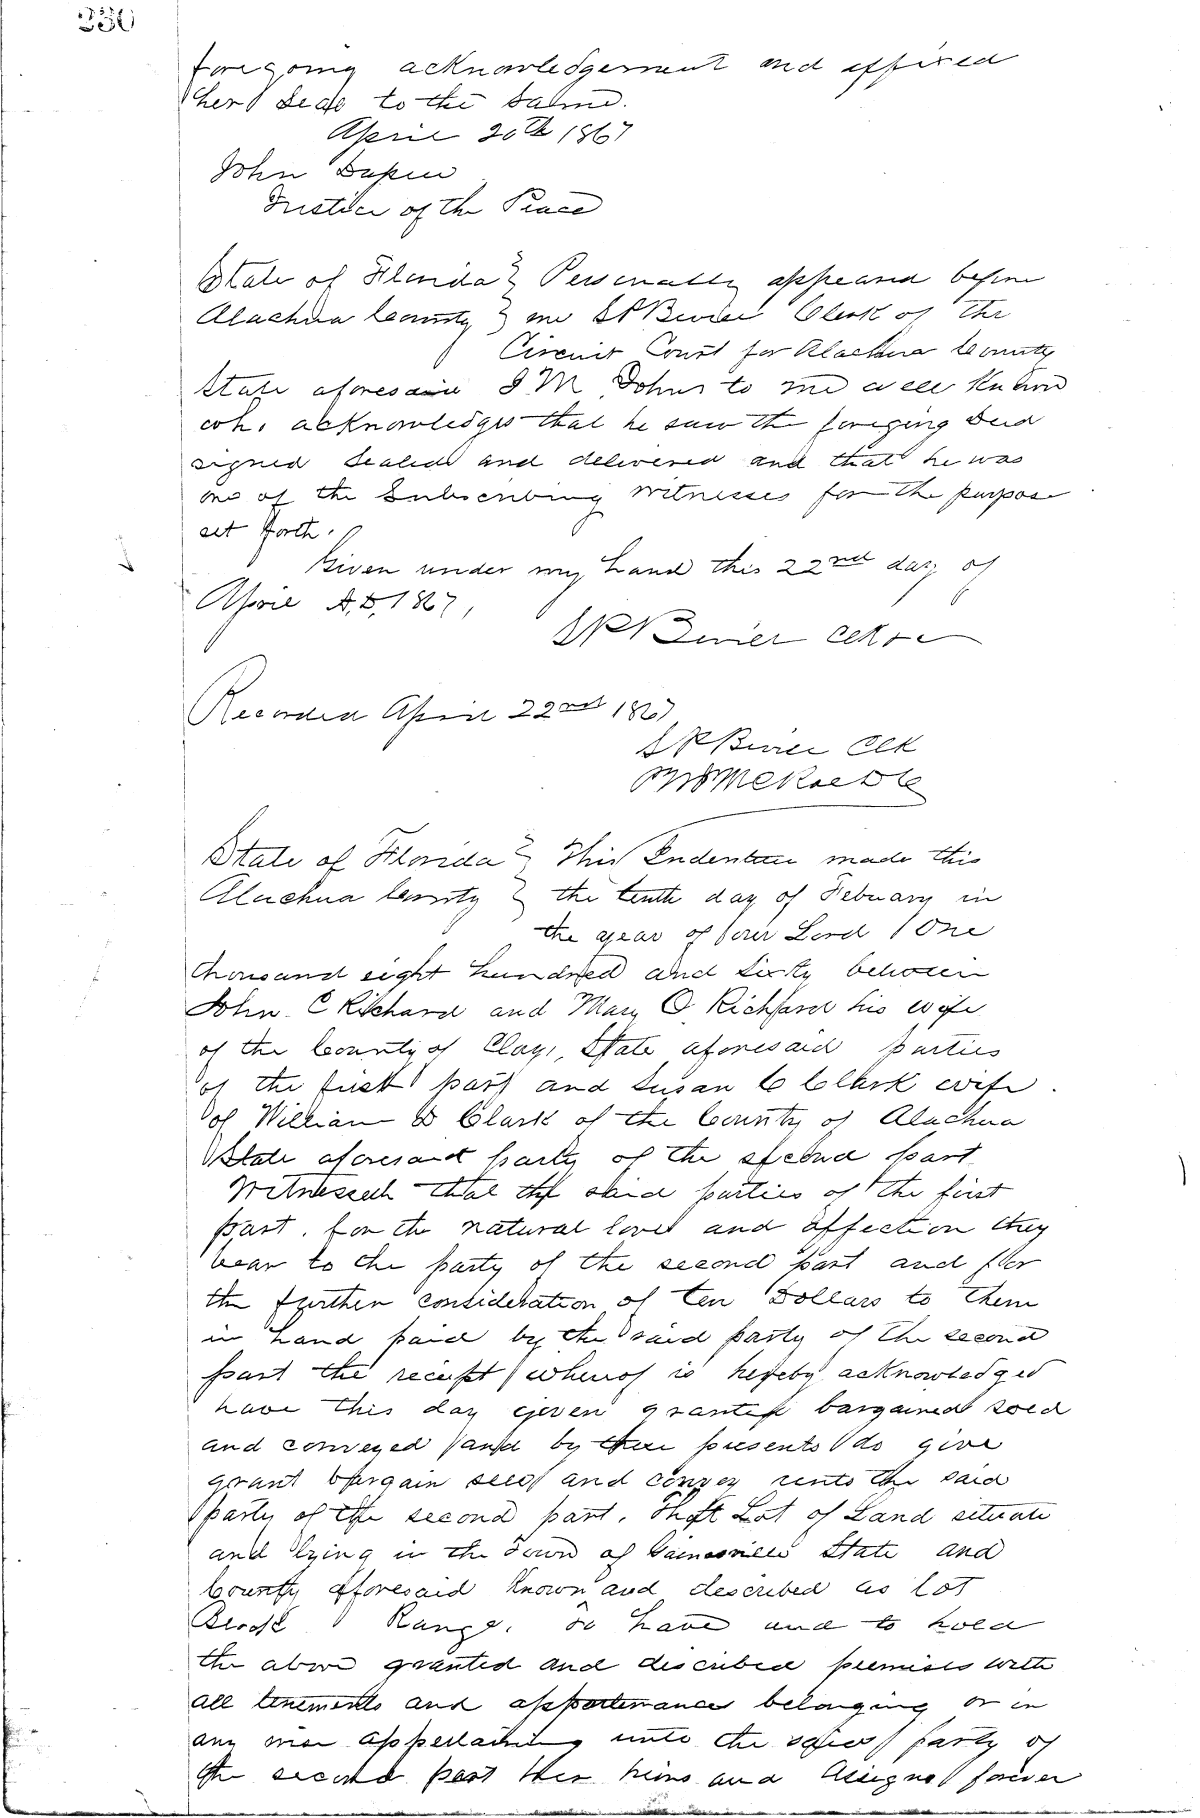 330
foregoing acknowledgement and affixed
her Seal to the Same.
April 20th 1867
John
Justice of the Peace
State of Florida } Personally appeared before
Alachua County } me Clerk of the
Circuit Court for Alachua County
State aforesaid J M Johns to me well Known
who acknowledges that he saw the foreging Deed
signed Sealed and delivered and that he was
one of the Subscribing Witnesses for the purpose
set forth.
Given under my hand this 22nd day of
April A.D. 1867,
Recorded April 22nd 1867
Clk
State of Florida } This Indenture made this
Alachua County } the tenth day of Febuary in
the year of four Lord One
thousand eight hundred and Sixty between
John C Richard and Mary O Richard his wife
of the County of Clay, State aforesaid parties
of the first part and Susan C Clark wife
of William D Clark of the County of Alachua
State aforesaid party of the second part
Witnesseth that the said parties of the first
part. for the natural love and affection they
bear to the party of the second part and for
the further consideration of ten Dollars to them
in hand paid by the said party of the second
part the receipt wherof is hereby acknowledged
have this day given granted bargained sold
and conveyed and by these presents do give
grant bargain sell and convey unto the said
party of the second part. That Lot of Land situate
and lying in the Town of Gainesville State and
County aforesaid Known and described as lot
Block Range. To have and to hold
the above granted and discribed premises with
all tenements and appertenances belonging or in
any wise appertaining unto the said party of
the second part her heirs and Assigns forever